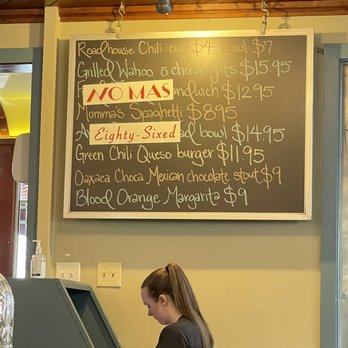 Roadhouse Chili cup $4 bowl $7
Grilled Wahoo & cheese grits $15.95
NO MAS
Sandwich $12.95
Momma's Spaghetti $8.95
Eighty-Sixed
bowl $14.95
Green Chili Queso burger $11.95
Oaxaca Choca Mexican chocolate stout $9
Blood Orange Margarita $9